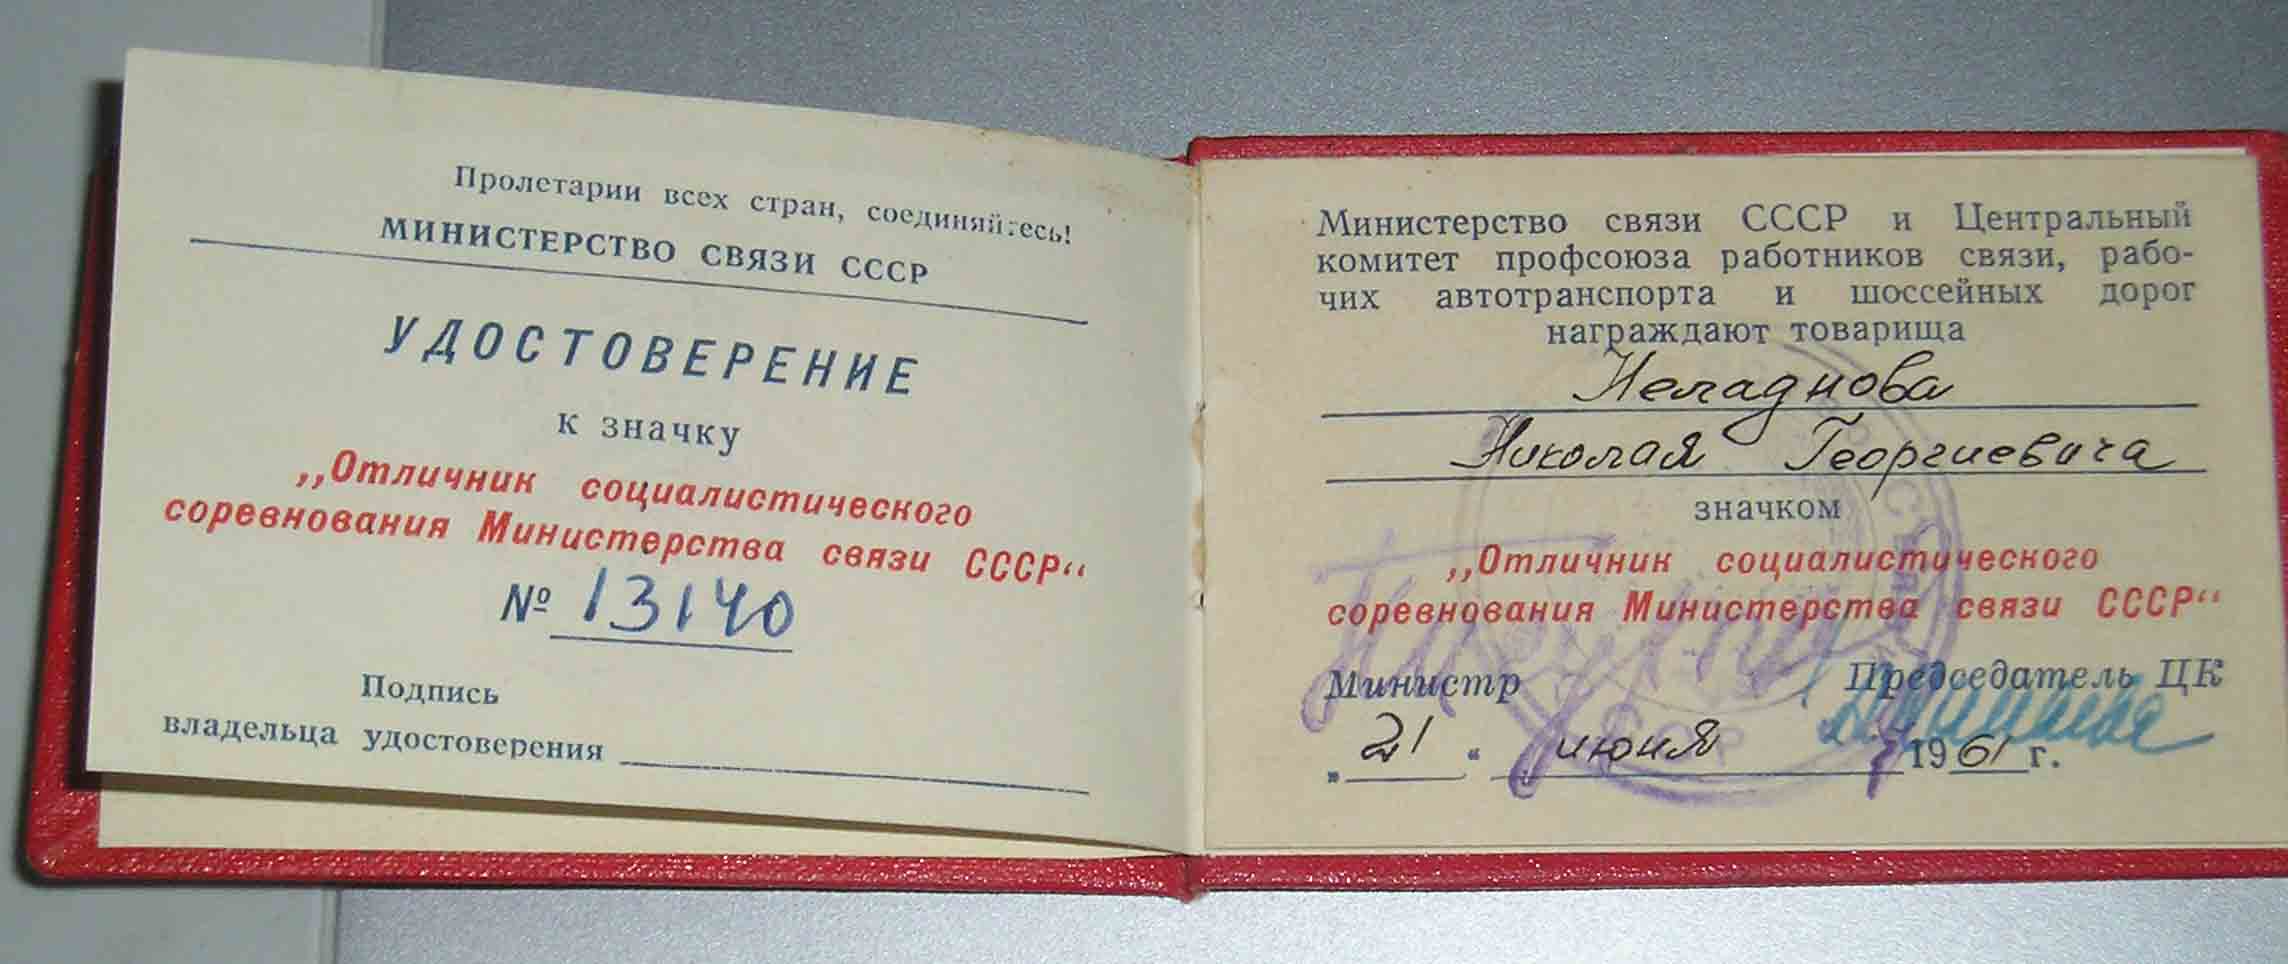 Пролетарии всех стран, соединяйтесь!
МИНИСТЕРСТВО СВЯЗИ СССР
УДОСТОВЕРЕНИЕ
к значку
„Отличник социалистического
соревнования Министерства связи СССР“
№ 13140
Подпись
владельца удостоверения
Министерство связи СССР и Центральный
комитет профсоюза работников связи, рабо-
чих автотранспорта и шоссейных дорог
награждают товарища
Неладнова
Николая Георгиевича
значком
„Отличник социалистического
соревнования Министерства связи СССР“
Министр Председатель ЦК
„21“ июня 1961 г.